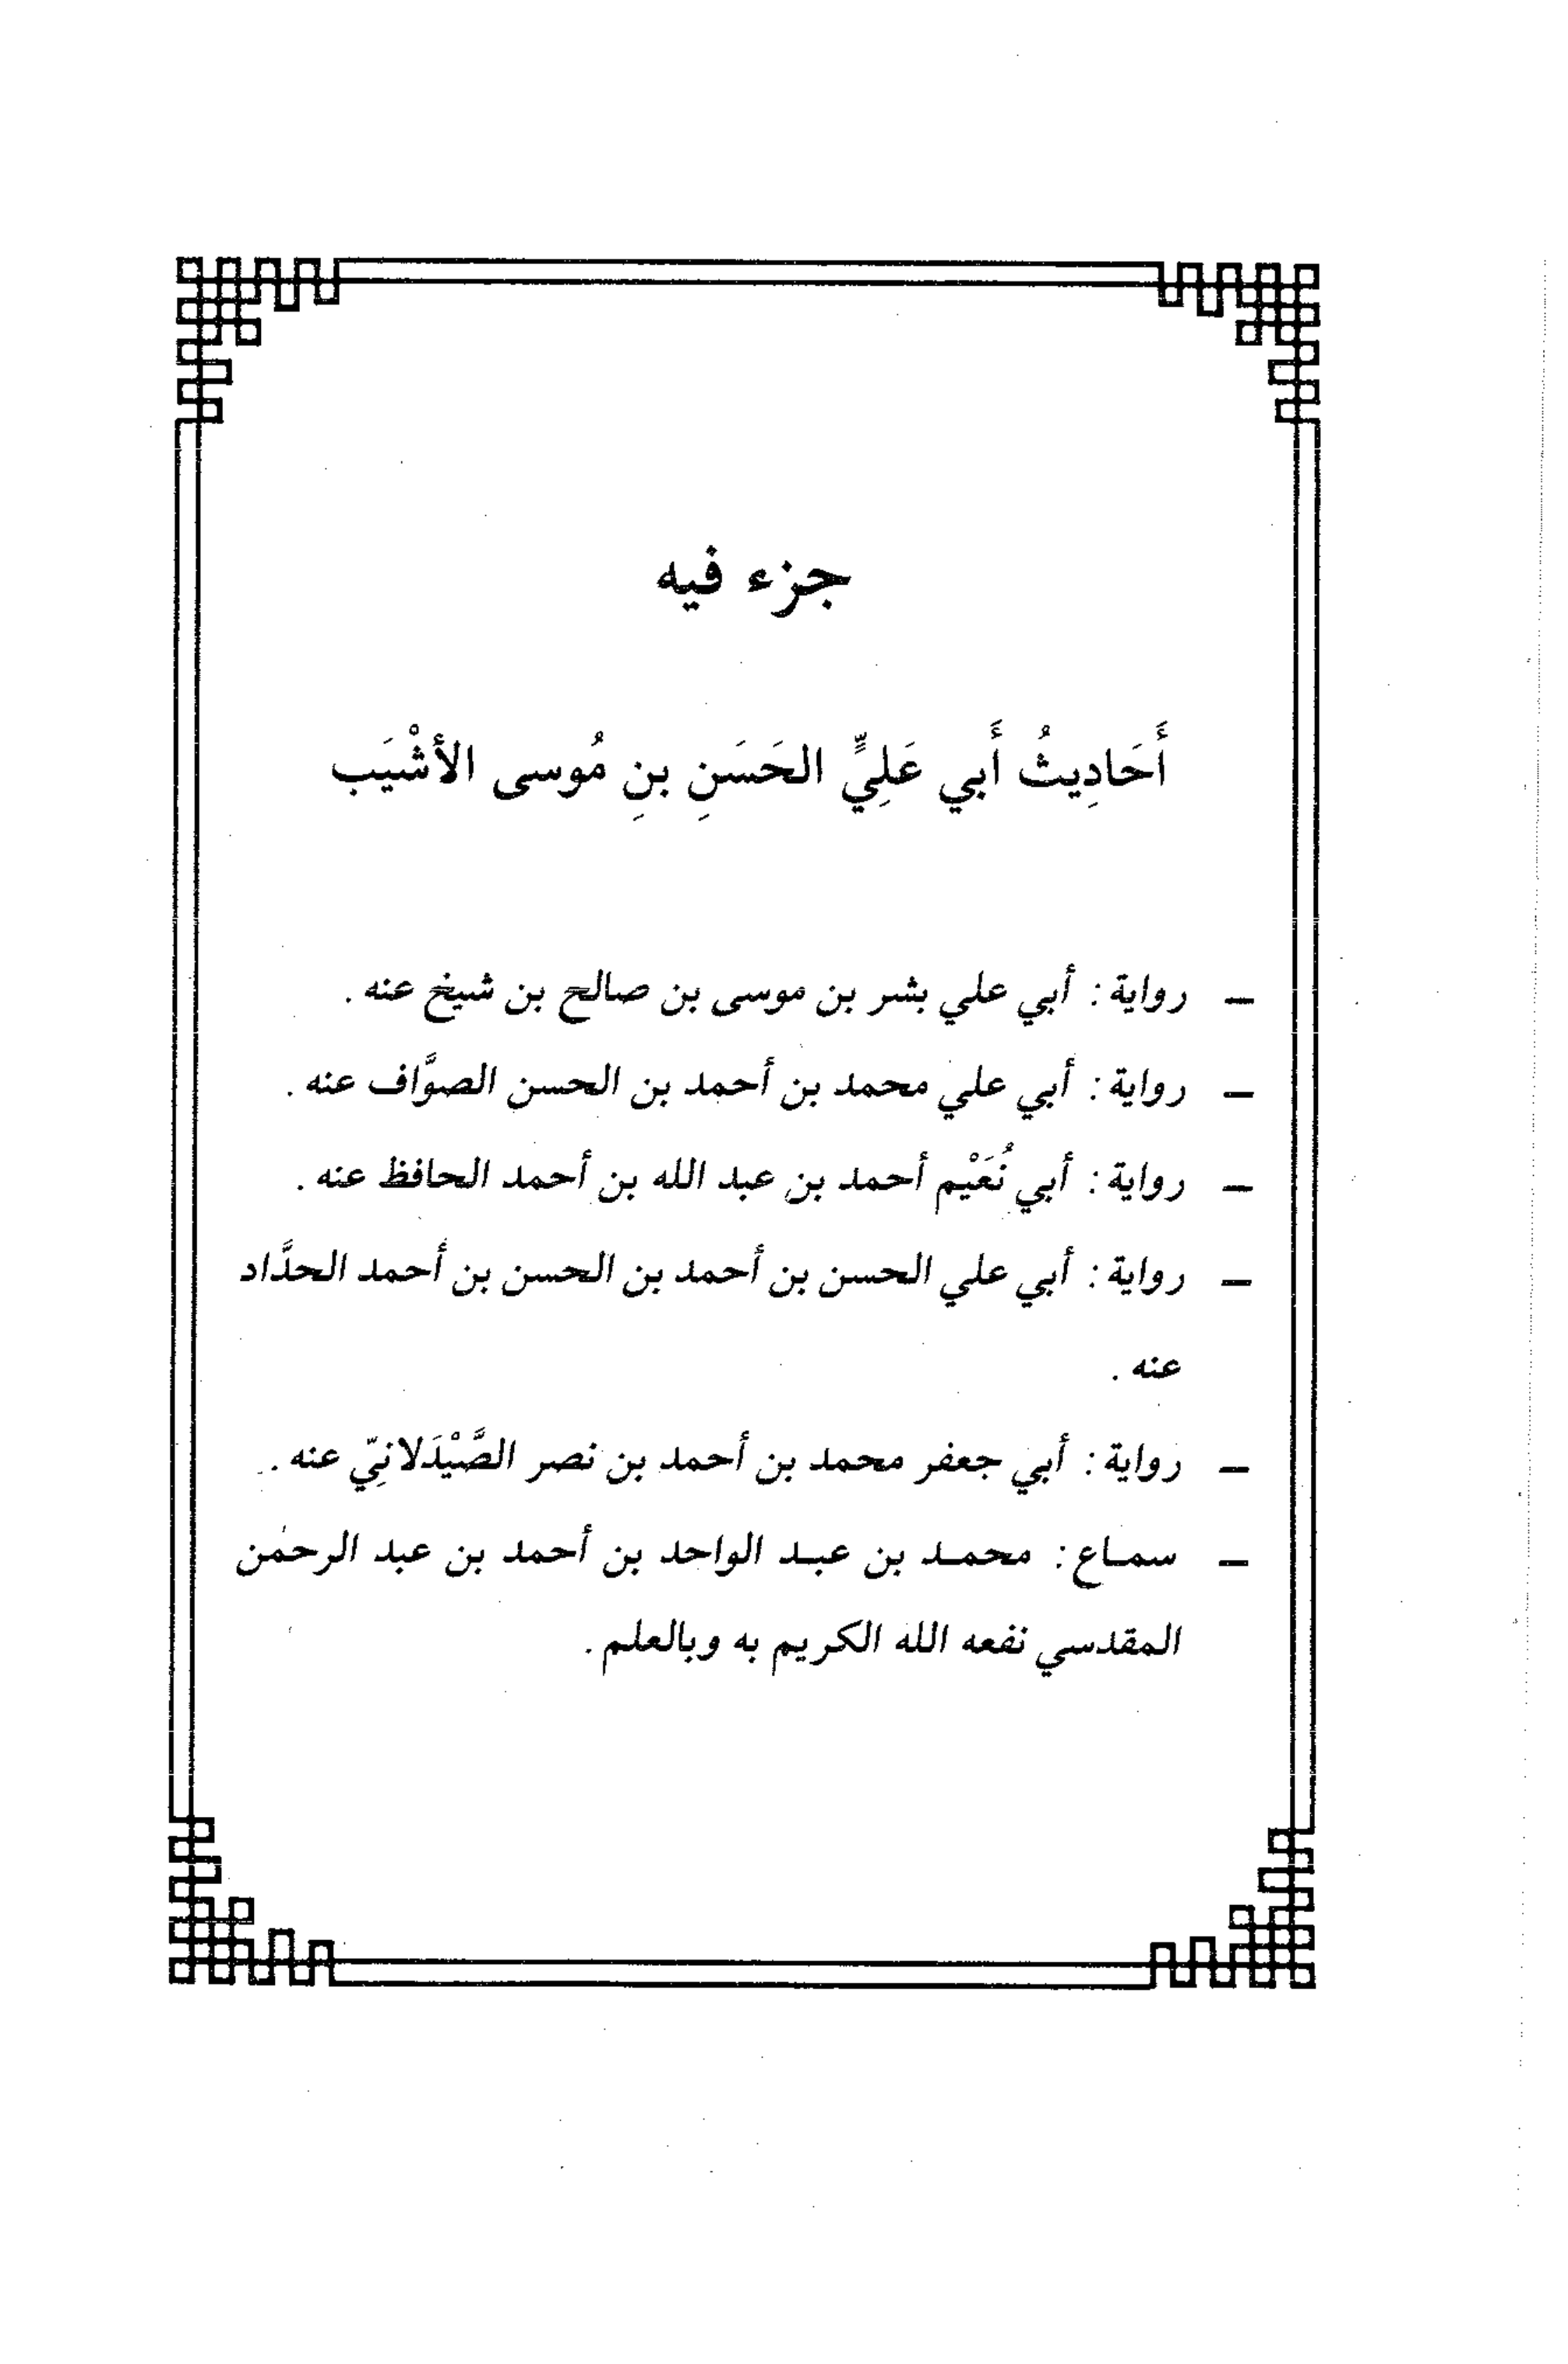 جزء فيه
أَحَادِيثُ أَبي عَلِيٍّ الحَسَنِ بنِ مُوسى الأشْيَب
— رواية: أبي علي بشر بن موسى بن صالح بن شيخ عنه.
— رواية: أبي علي محمد بن أحمد بن الحسن الصوَّاف عنه.
— رواية: أبي نُعَيْم أحمد بن عبد الله بن أحمد الحافظ عنه.
— رواية: أبي علي الحسن بن أحمد بن الحسن بن أحمد الحدَّاد
عنه.
— رواية: أبي جعفر محمد بن أحمد بن نصر الصَّيْدَلانِيّ عنه.
— سمـاع: محمـد بن عبـد الواحد بن أحمد بن عبد الرحمٰن
المقدسي نفعه الله الكريم به وبالعلم.